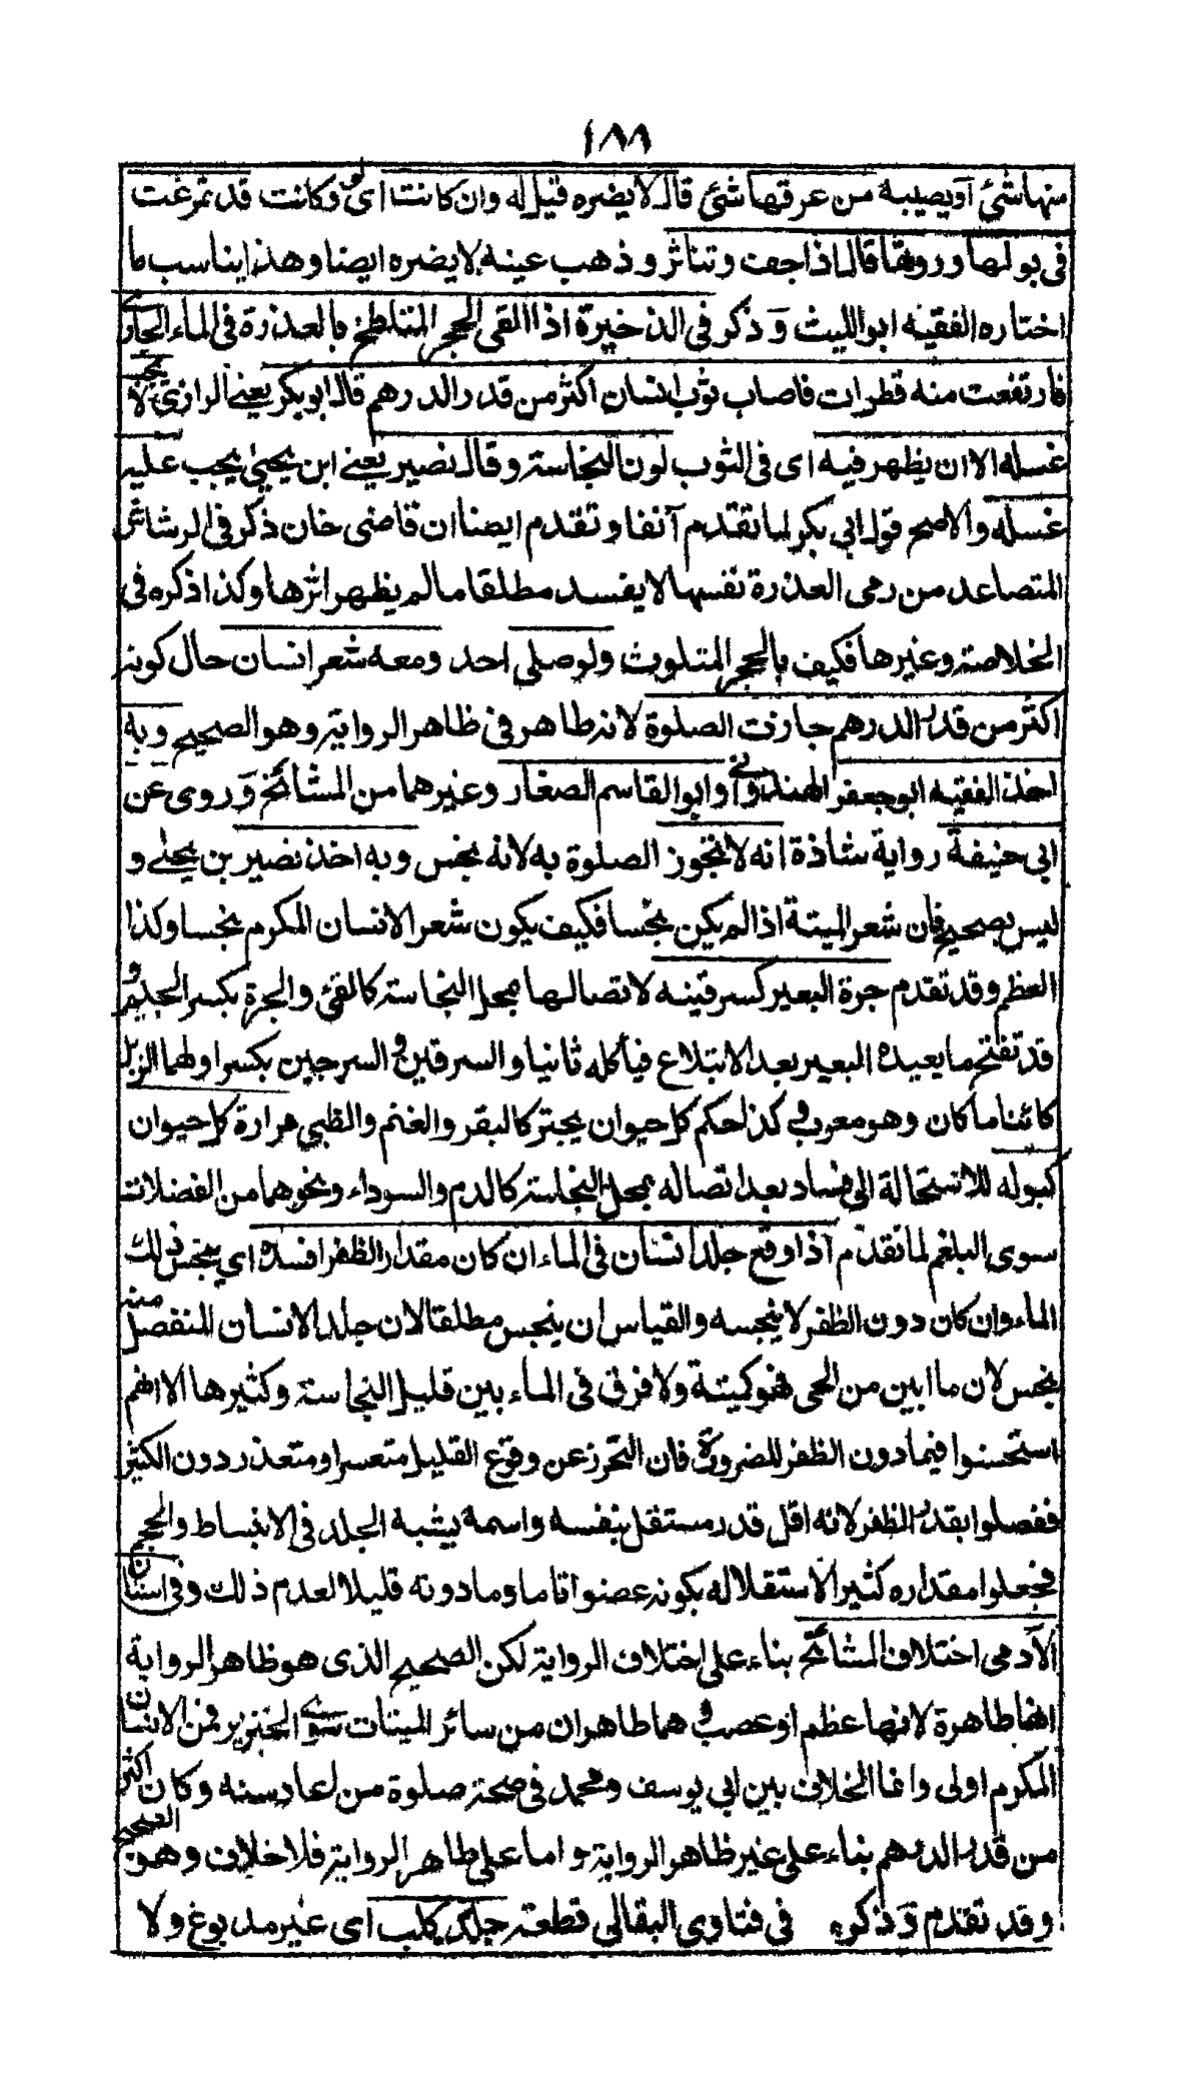 ١٨٨
منها شئ أو يصيبه من عرقها شئ قال لا يضره قيل له وان كانت اى ولو كانت قد تمرغت
فى بولها وروثها قال اذا جفت وتناثر وذهب عينه لا يضره ايضا وهذا يناسب ما
اختاره الفقيه ابو الليث وذكر فى الذخيرة اذا القى الحجر المتلطخ بالعذرة فى الماء الجارى
فارتفعت منه قطرات فاصاب ثوب انسان اكثر من قدر الدرهم قال ابو بكر يعنى الرازى لا يجب
غسله الا ان يظهر فيه اى فى الثوب لون النجاسة وقال نصير يعنى ابن يحيى يجب عليه
غسله والاصح قول ابى بكر لما تقدم آنفا وتقدم ايضا ان قاضى خان ذكر فى الرشاش
المتصاعد من رمى العذرة نفسها لا يفسد مطلقا ما لم يظهر اثرها وكذا ذكره فى
الخلاصة وغيرها فكيف بالحجر المتلوث ولو صلى احد ومعه شعر انسان حال كونه
اكثر من قدر الدرهم جازت الصلوة لانه طاهر فى ظاهر الرواية وهو الصحيح وبه
اخذ الفقيه ابو جعفر الهندوانى وابو القاسم الصفار وغيرهما من المشائخ وروى عن
ابى حنيفة رواية شاذة انه لا تجوز الصلوة به لانه نجس وبه اخذ نصير بن يحيى و
ليس بصحيح فان شعر الميتة اذا لم يكن نجسا فكيف يكون شعر الانسان المكرم نجسا وكذا
العظم وقد تقدم جرة البعير كسرقينه لاتصالها بمحل النجاسة كالقئ والجرة بكسر الجيم و
قد تفتح ما يعيده البعير بعد الابتلاع فيأكله ثانيا والسرقين و السرجين بكسر اولهما الزبل
كائنا ما كان وهو معرب و كذا حكم كل حيوان يجتر كالبقر والغنم والظبى مرارة كل حيوان
كبوله للاستحالة الى فساد بعد اتصاله بمحل النجاسة كالدم والسوداء ونحوهما من الفضلات
سوى البلغم لما تقدم اذا وقع جلد انسان فى الماء ان كان مقدار الظفر افسده اى ينجس ذلك
الماء وان كان دون الظفر لا ينجسه والقياس ان ينجس مطلقا لان جلد الانسان المنفصل منه
نجس لان ما ابين من الحى فهو كميتة ولا فرق فى الماء بين قليل النجاسة وكثيرها الا انهم
استحسنوا فيما دون الظفر للضرورة فان التحرز عن وقوع القليل متعسر او متعذر دون الكثير
ففصلوا بقدر الظفر لانه اقل قدر مستقل بنفسه واسمه يشبه الجلد فى الانبساط والحجم
فجعلوا مقداره كثيرا لاستقلاله بكونه عضوا تاما وما دونه قليلا لعدم ذلك وفى اسنان
الآدمى اختلاف المشائخ بناء على اختلاف الرواية لكن الصحيح الذى هو ظاهر الرواية
انها طاهرة لانها عظم او عصب و هما طاهران من سائر الميتات سوى الخنزير فمن الانسان
المكرم اولى وانما الخلاف بين ابى يوسف ومحمد فى صحة صلوة من اعاد سنه وكان اكثر
من قدر الدرهم بناء على غير ظاهر الرواية واما على ظاهر الرواية فلا خلاف وهو الصحيح
وقد تقدم وذكره فى فتاوى البقالى قطعة جلد كلب اى غير مدبوغ ولا